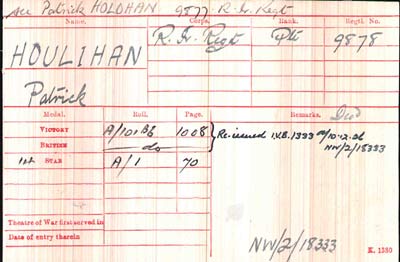 see Patrick HOLOHAN 9877. R. Ir. Regt
Name. Corps. Rank. Regtl. No.
HOULIHAN R. Ir. Regt Pte 9878
Patrick
Medal. Roll. Page. Remarks. Died
VICTORY A/101 B6 1008 Re-issued I.V.B. 1333 10.12.26
BRITISH do NW/2/18333
1914 STAR A/1 70
Theatre of War first served in
Date of entry therein
NW/2/18333 K. 1380